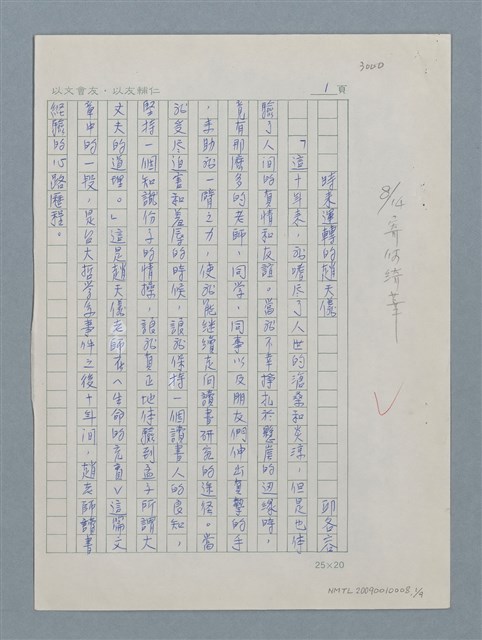 3000
以文會友·以友輔仁
1頁
8/14 寄
時來運轉的趙天儀
邱各容
「這十年來,我嚐盡了人世的滄桑和炎涼,但是也体
驗了人间的真情和友誼。當我不幸掙扎於懸崖的边緣時,
竟有那麼多的老師、同学、同事以及朋友們伸出真摯的手
,來助我一臂之力,使我能継續走向讀書研究的途径。當
我受尽迫害和羞辱的時候,讓我保持一個讀書人的良知,
堅持一個知識份子的情操,讓我真正地体驗到孟子所謂大
丈夫的道理。」這是趙天儀老師在〈生命的充實〉這篇文
章中的一段,是台大哲学系事件之後十年间,趙老師讀書
經驗的心路歷程。
25×20
NMTL20090010008. 1/9